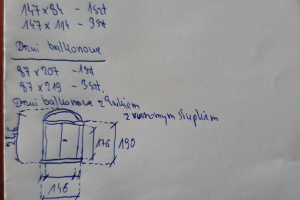 147x84 - 1szt
147x114 - 3szt
Drzwi balkonowe
87x207 - 1szt
87x219 - 3szt.
Drzwi balkonowe z łukiem
z ruchomym słupkiem
246
176
190
146